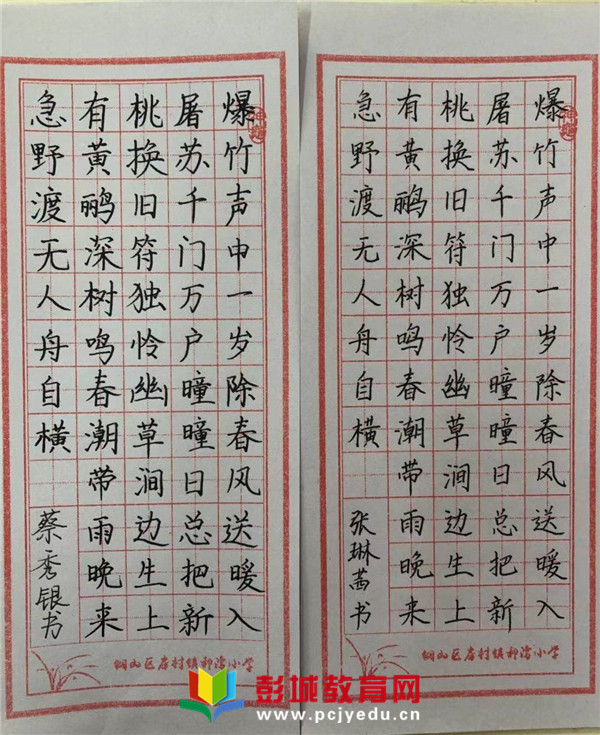 爆竹声中一岁除春风送暖入
屠苏千门万户曈曈日总把新
桃换旧符独怜幽草涧边生上
有黄鹂深树鸣春潮带雨晚来
急野渡无人舟自横
蔡秀银书
铜山区房村镇小学
爆竹声中一岁除春风送暖入
屠苏千门万户曈曈日总把新
桃换旧符独怜幽草涧边生上
有黄鹂深树鸣春潮带雨晚来
急野渡无人舟自横
张琳茜书
铜山区房村镇小学
彭城教育网
www.pcjyedu.cn